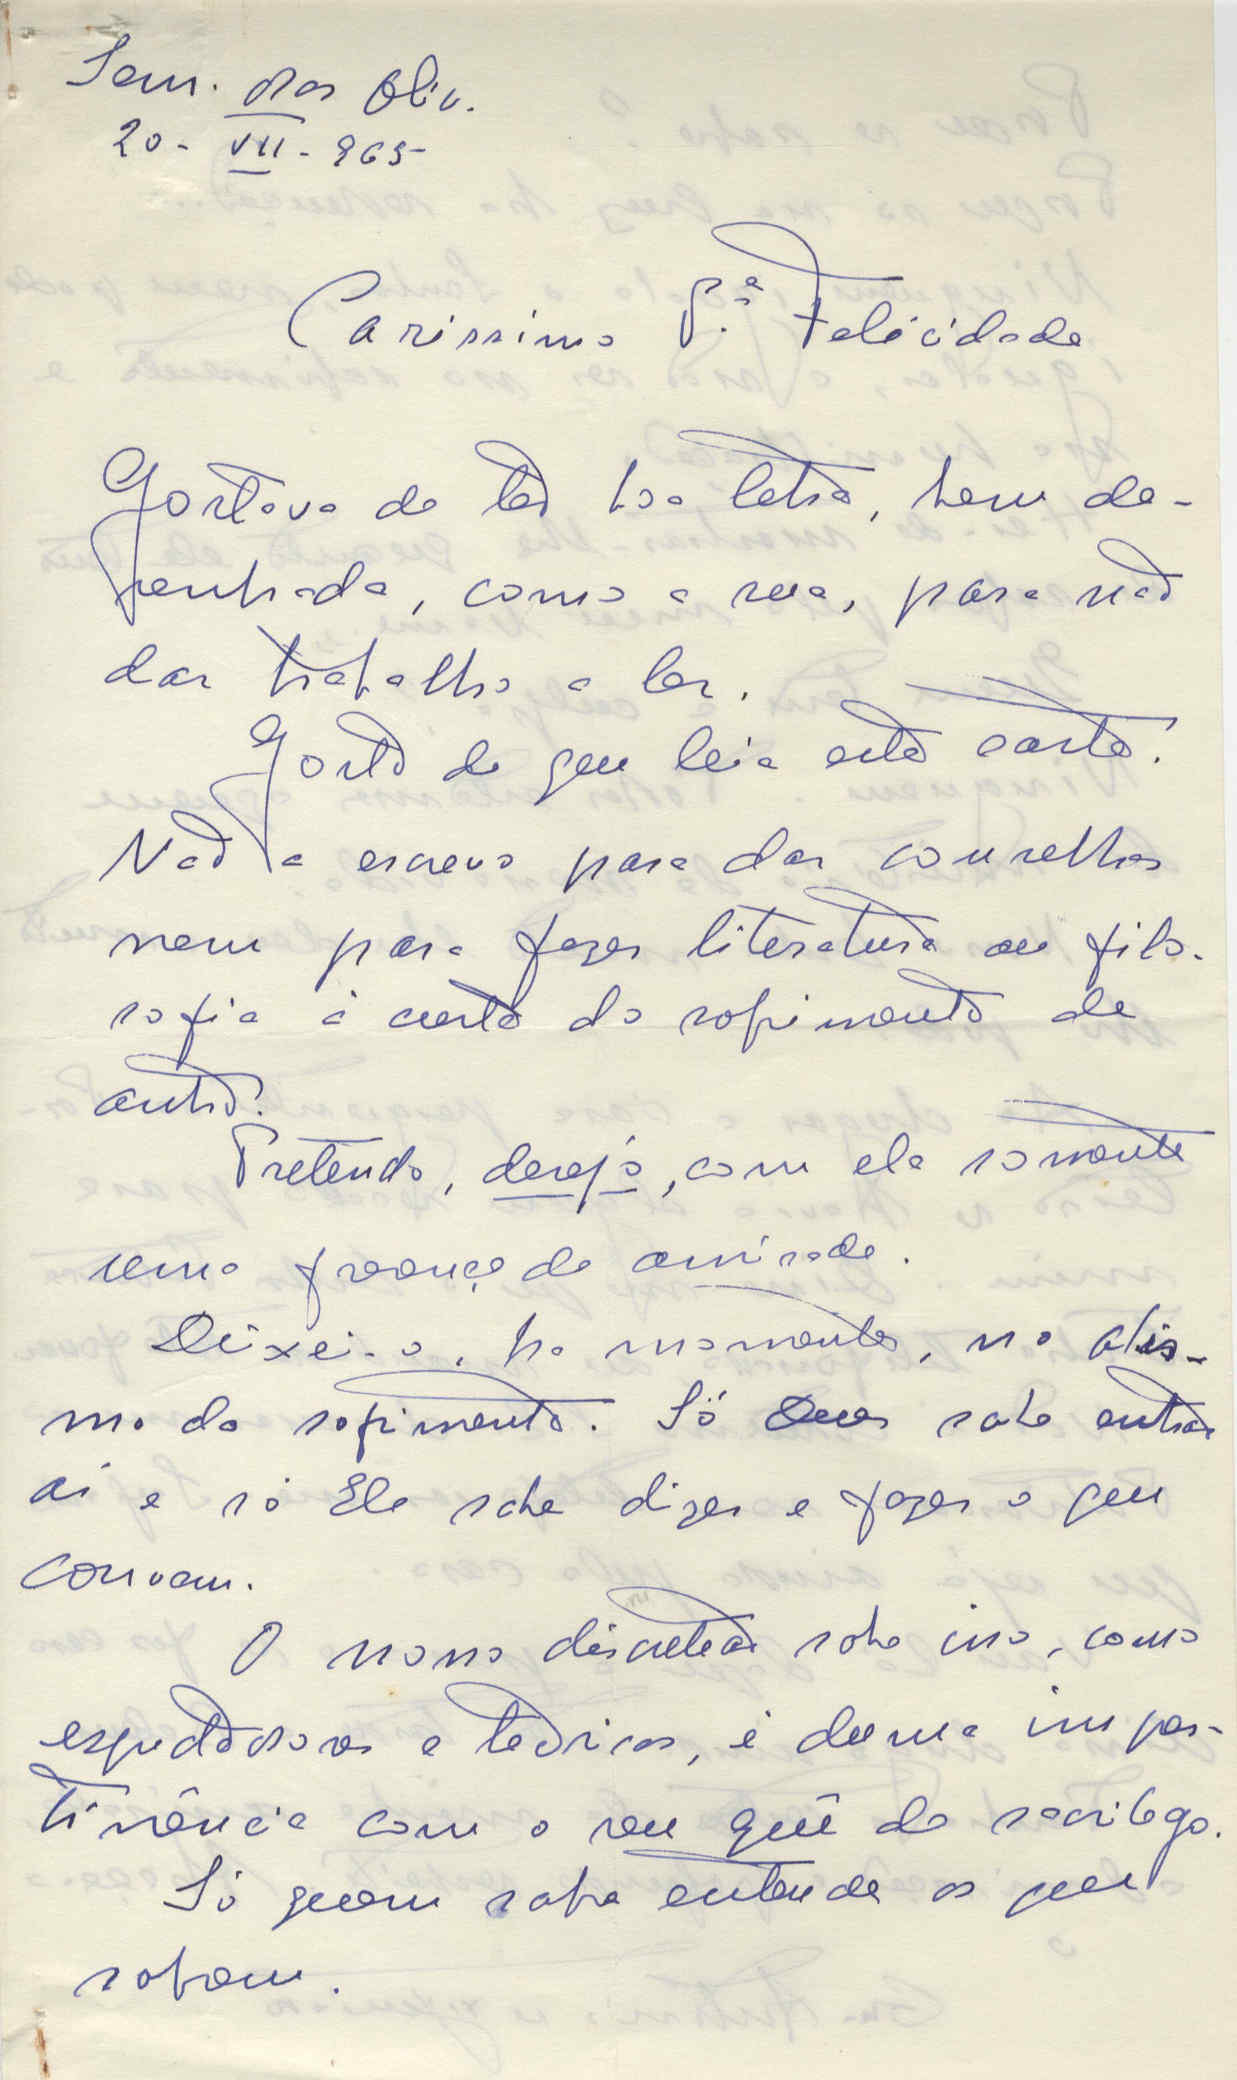 Sem. dos Oliv.
20 - VII - 965
Caríssimo P.e Felicidade
Gostava de ter boa letra, bem de-
senhada, como a sua, para não
dar trabalho a ler.
Gosto de que leia esta carta.
Não a escrevo para dar conselhos
nem para fazer literatura ou filo-
sofia à custa do sofrimento de
outro.
Pretendo, desejo, com ela somente
uma presença de amizade.
Deixei-o, há momentos, no abis-
mo do sofrimento. Só Deus sabe entrar
aí e só Ele sabe dizer e fazer o que
convem.
O nosso discretear sobre isso, como
espectadores e teóricos, é duma imper-
tinência com o seu quê de sacrilego.
Só quem sofre entende os que
sofrem.